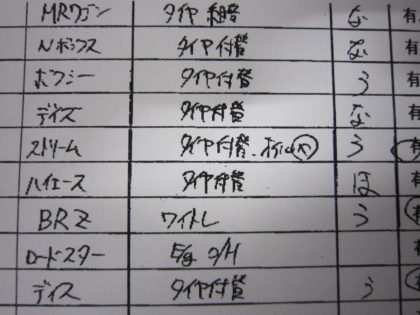 MRワゴン タイヤ 組替 な 有
Nボックス タイヤ付替 な 有
ボクシー タイヤ付替 う 有
デイズ タイヤ付替 な 有
ストリーム タイヤ付替. う 有
ハイエース タイヤ付替 ほ 有
BRZ ワイトレ う 有
ロードスター E/g O/H 有
デイズ タイヤ付替 う